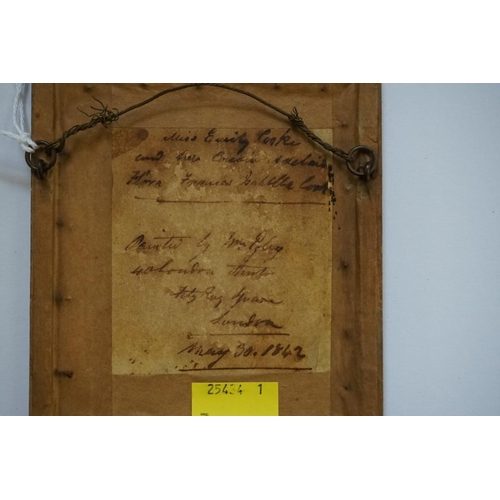 Miss Emily Cooke
and her Cousin Adelaide
Flora Frances Cooke
Painted by Wm Egley
40 London Street
Fitzroy Square
London
May 30. 1842
25424 1